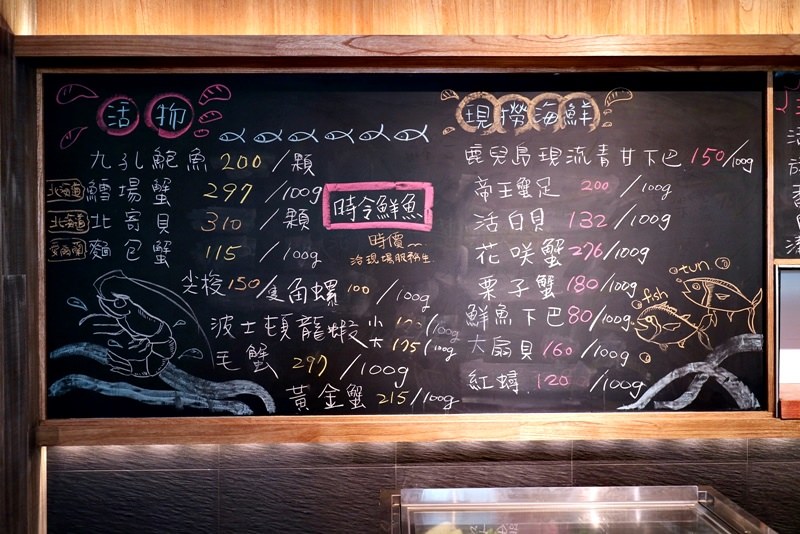 活物
九孔鮑魚 200/顆
北海道 鱈場蟹 297/100g
北海道 北寄貝 310/顆
麵包蟹 115/100g
尖梭 150/隻 角螺 100/100g
波士頓龍蝦 小 /100g
大 175/100g
毛蟹 297/100g
黃金蟹 215/100g
時令鮮魚
時價~
洽現場服務生
現撈海鮮
鹿兒島現流青甘下巴 150/100g
帝王蟹足 200/100g
活白貝 132/100g
花咲蟹 276/100g
栗子蟹 180/100g
鮮魚下巴 80/100g
大扇貝 160/100g
紅蟳 120/100g
tun
fish